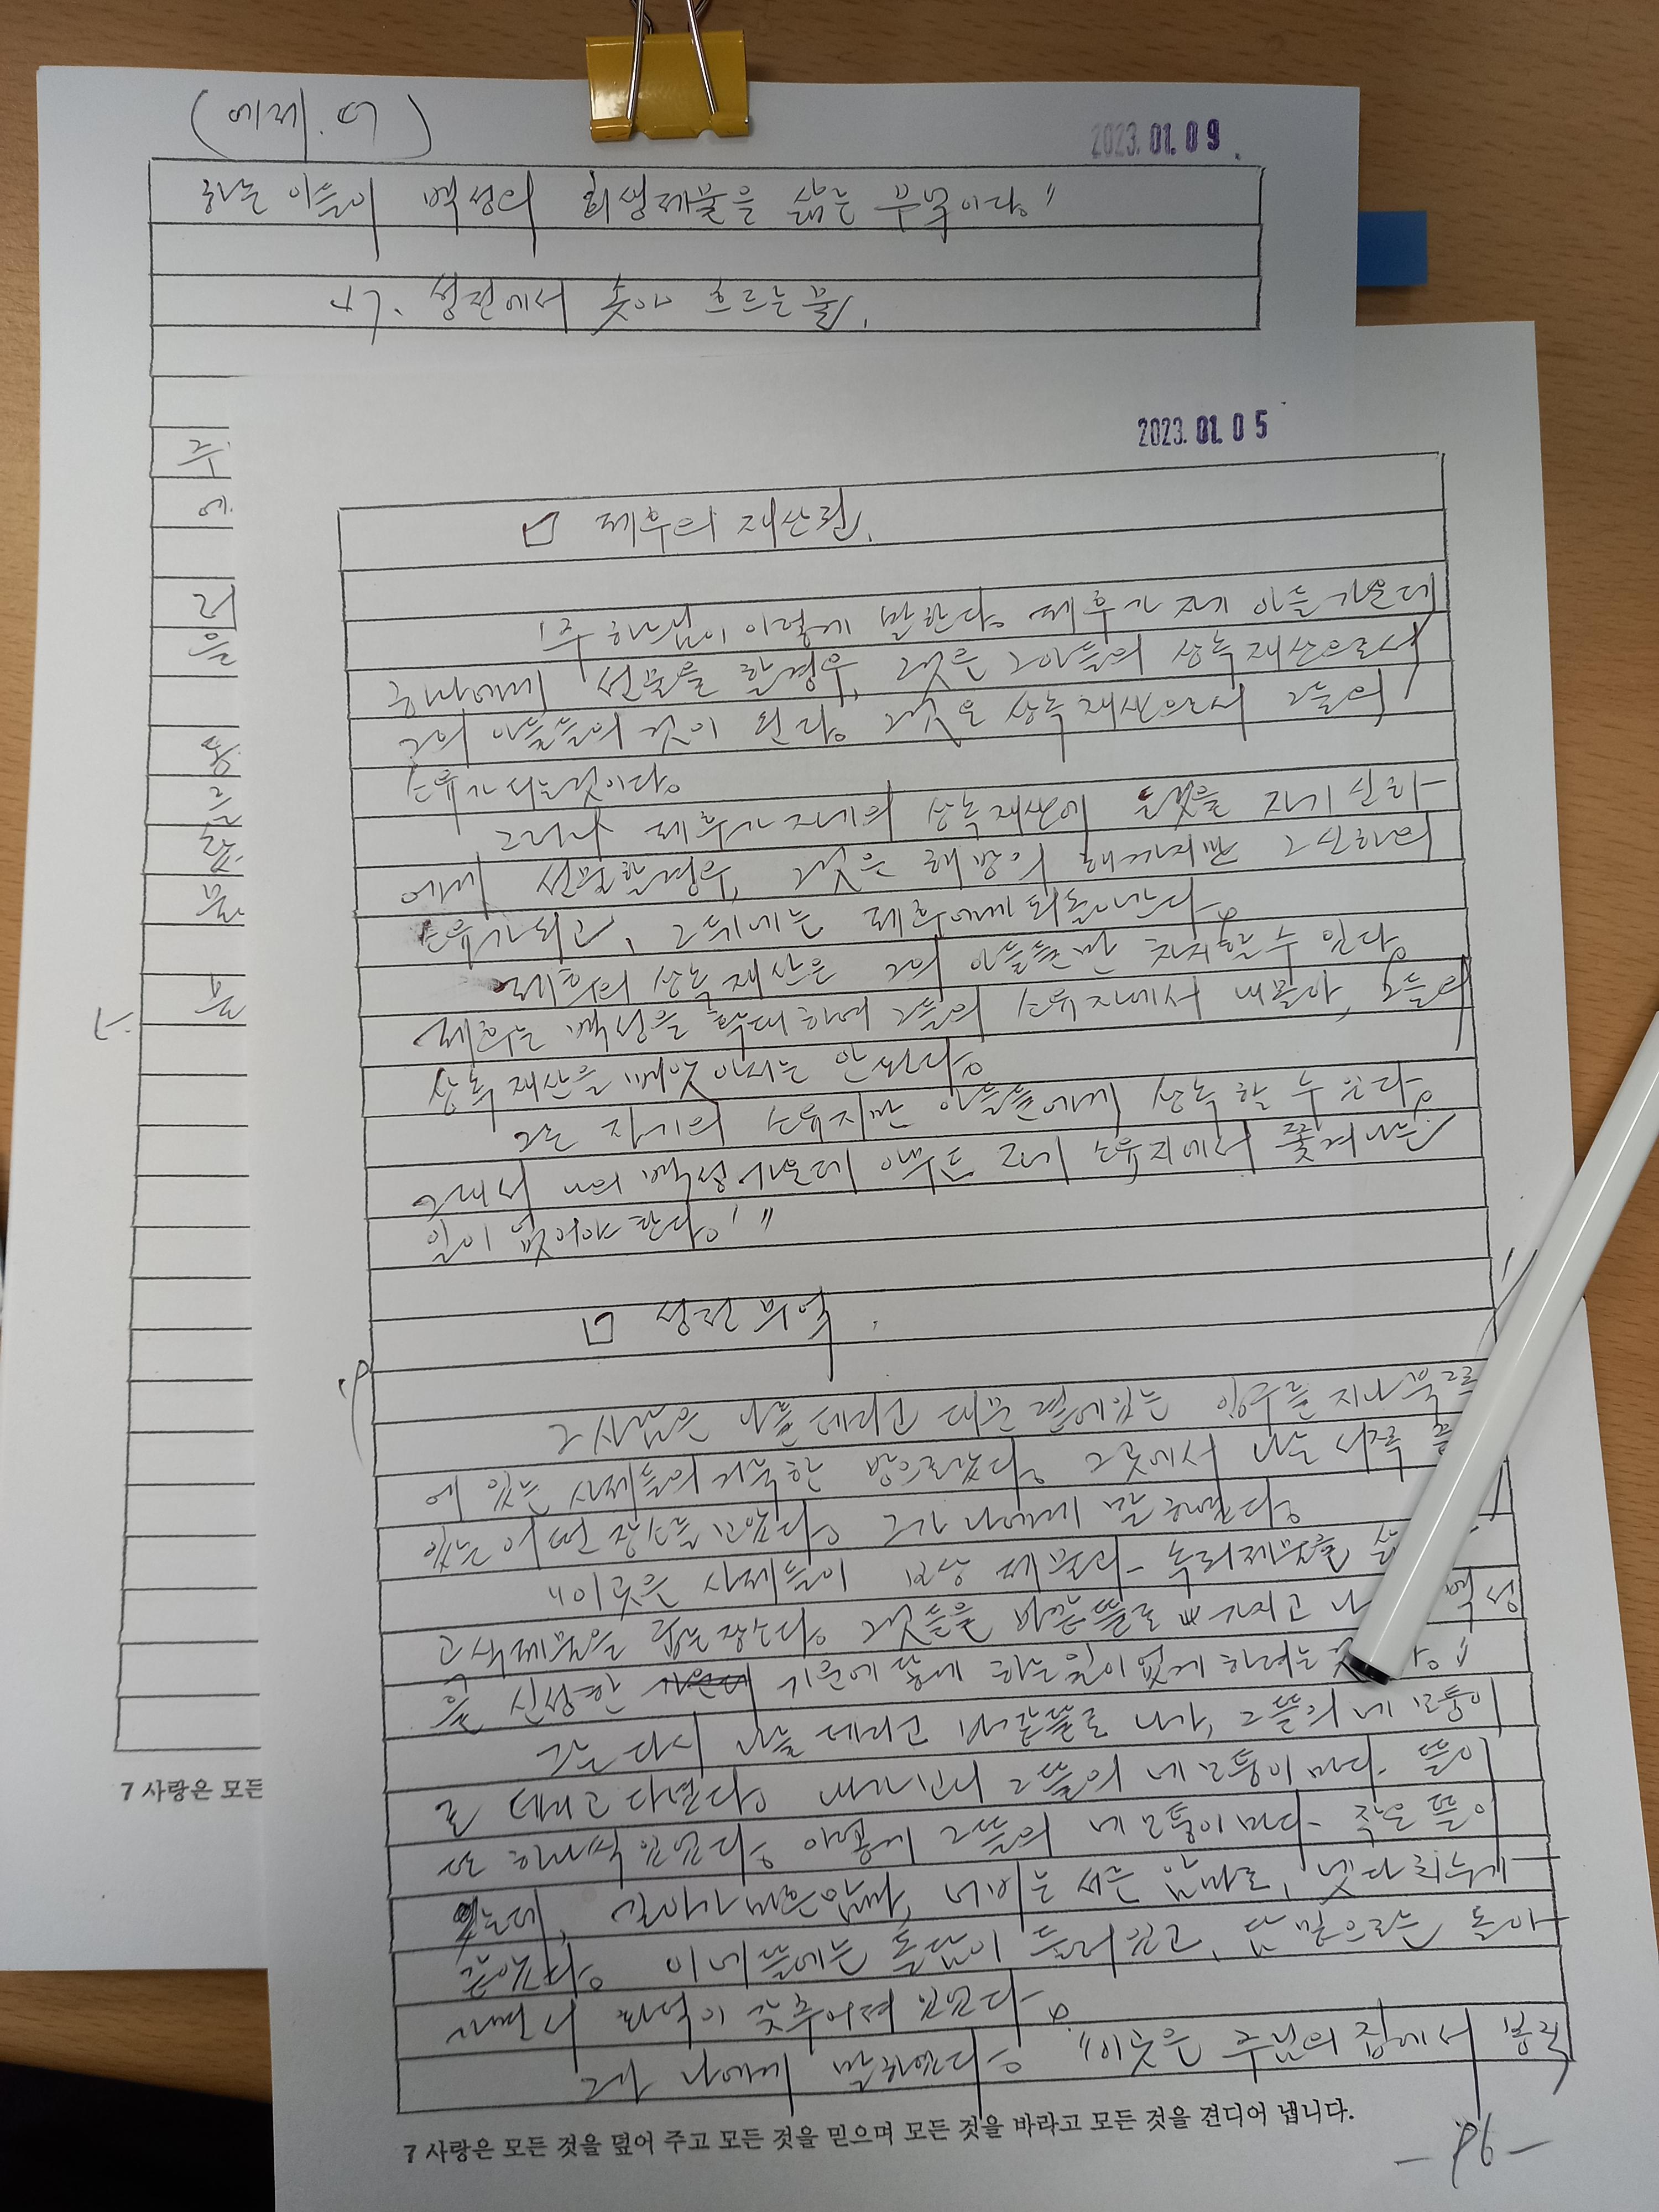 (에제. 47)
2023. 01. 09
하는 이들이 백성의 희생제물을 삶는 부엌이다."
47. 성전에서 솟아 흐르는 물.
주
에
리
을
동
르
물
7 사랑은 모든
2023. 01. 05
□ 제후의 재산권.
'주 하느님이 이렇게 말한다. 제후가 자기 아들 가운데
하나에게 선물을 할경우, 그것은 그아들의 상속 재산으로서
그의 아들들의 것이 된다. 그것은 상속 재산으로서 그들의
소유가 되는것이다.
그러나 제후가 자기의 상속재산에 든것을 자기 신하
에게 선물할경우, 그것은 해방의 해까지만 그 신하의
소유가 되고, 그 뒤에는 제후에게 되돌아간다.
제후의 상속 재산은 그의 아들들만 차지할 수 있다.
제후는 백성을 학대하여 그들의 소유지에서 내몰아, 그들의
상속 재산을 빼앗아서는 안된다.
그는 자기의 소유지만 아들들에게 상속할 수 있다.
그래서 나의 백성 가운데 아무도 제 소유지에서 쫓겨나는
일이 없어야 한다.'"
□ 성전 부엌.
그 사람은 나를 데리고 대문 곁에있는 입구를 지나 북쪽
에 있는 사제들의 거룩한 방으로갔다. 그곳에서 나는 서쪽
있는 어떤 장소를 보았다. 그가 나에게 말하였다.
"이곳은 사제들이 보상 제물과 속죄제물을
고 곡식제물을 굽는 장소다. 그것들을 바깥뜰로 가지고 나 백성
을 신성한 기운에 닿게 하는일이 없게 하려는 "
그는 다시 나를 데리고 바깥뜰로 나가, 그 뜰의 네 모퉁이
로 데리고 다녔다. 내가보니 그 뜰의 네 모퉁이 마다 뜰이
또 하나씩 있었다. 이렇게 그 뜰의 네 모퉁이 마다 작은 뜰이
있는데, 길이가 마흔 암마, 너비는 서른 암마로, 넷다 치수가
같았다. 이 네 뜰에는 돌담이 둘러 있고, 담 밑으로는 돌아
가면서 화덕이 갖추어져 있었다.
그가 나에게 말하였다. "이곳은 주님의 집에서 봉직
7 사랑은 모든 것을 덮어 주고 모든 것을 믿으며 모든 것을 바라고 모든 것을 견디어 냅니다.
-96-